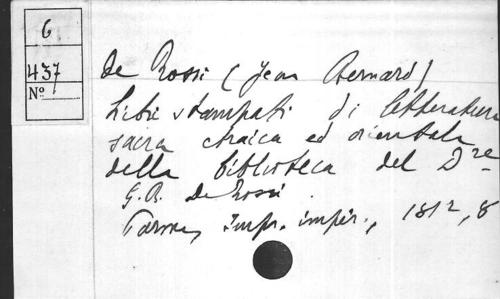 6
437
No
De Rossi (Jean Bernard)
Libri stampati di letteratura
sacra ebraica ed orientale
della biblioteca del Dre
G. B. de Rossi
Parme, impr. impér., 1812, 8